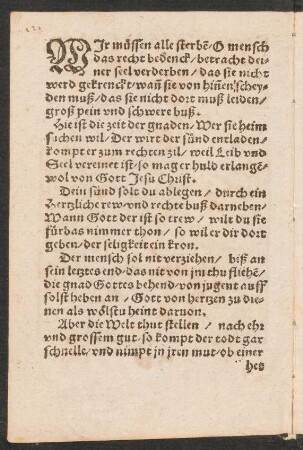 WIr müssen alle sterbẽ/ O mensch
das recht bedenck/ betracht dei-
ner seel verderben/ das sie nicht
werd gekrenckt/ wañ sie von hiñen schey-
den muß/ das sie nicht dort muß leiden/
groß pein vnd schwere buß.
Hie ist die zeit der gnaden/ Wer sie heim
suchen wil/ Der wirt der sünd entladen/
kompt er zum rechten zil/ weil Leib vnd
Seel vereinet ist/ so mag er huld erlangẽ/
wol von Gott Jesu Christ.
Dein sünd solt du ablegen/ durch ein
hertzliche rew/ vnd rechte buß darneben/
Wann Gott der ist so trew/ wilt du sie
fürbas nimmer thon/ so wil er dir dort
geben/ der seligkeit ein kron.
Der mensch sol nit verziehen/ biß an
sein letztes end/ das nit von jm thu fliehẽ/
die gnad Gottes behend/ von jugent auff
solst heben an/ Gott von hertzen zu die-
nen als wölstu heint daruon.
Aber die Welt thut stellen/ nach ehr
vnd grossem gut/ so kompt der todt gar
schnelle/ vnd nimpt in jren mut/ ob einer
het